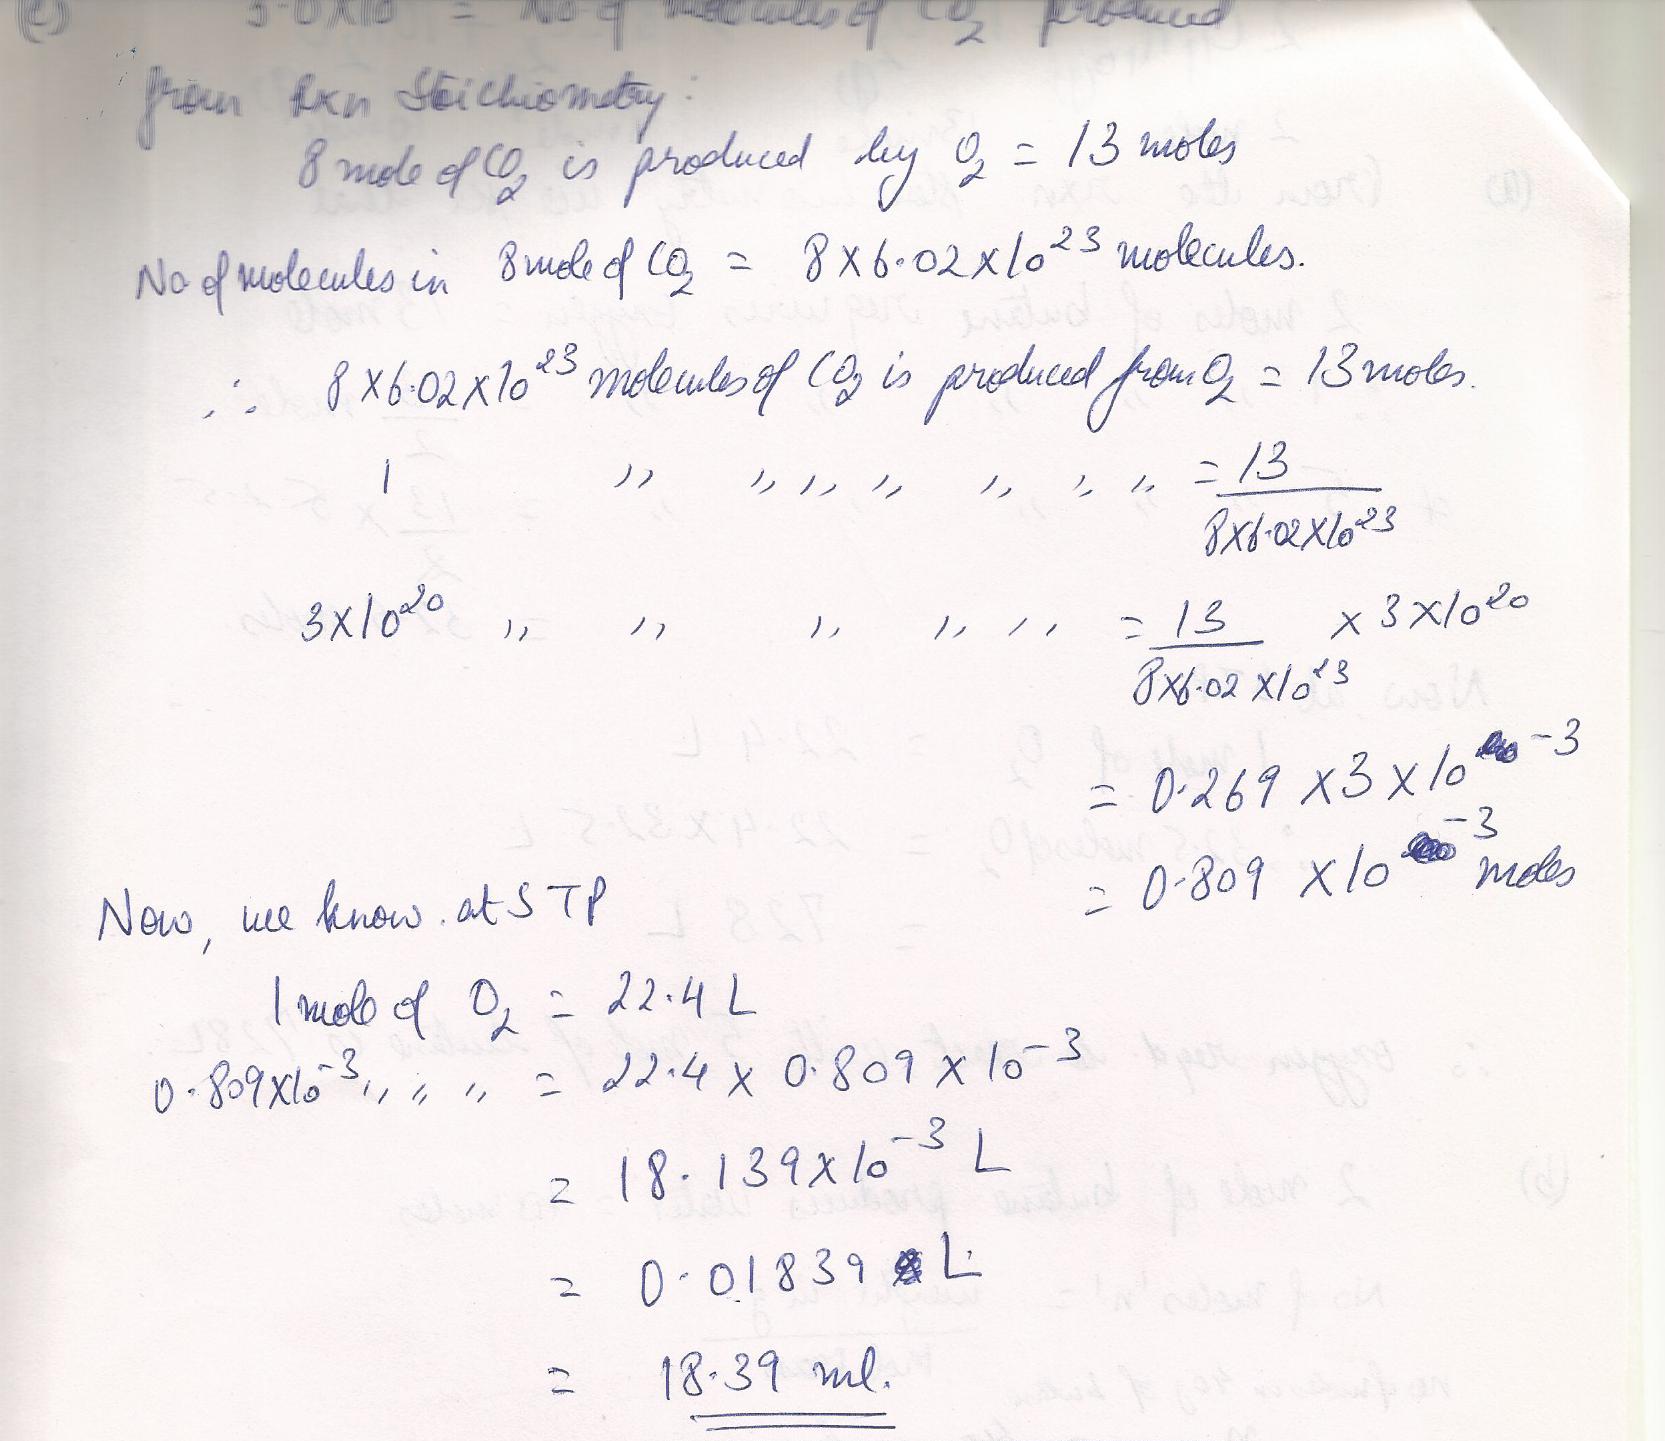 (c) 3.0x10 = No of molecules of CO2 produced
from Rxn Stoichiometry:
8 mole of CO2 is produced by O2 = 13 moles
No of molecules in 8 mole of CO2 = 8 x 6.02 x 10^23 molecules.
∴ 8 x 6.02 x 10^23 molecules of CO2 is produced from O2 = 13 moles.
1 ,, ,, ,, ,, ,, ,, ,, = 13 / 8x6.02x10^23
3x10^20 ,, ,, ,, ,, ,, = 13 / 8x6.02x10^23 x 3x10^20
= 0.269 x 3 x 10^-3
= 0.809 x 10^-3 moles
Now, we know at STP
1 mole of O2 = 22.4 L
0.809x10^-3 ,, ,, ,, = 22.4 x 0.809 x 10^-3
= 18.139 x 10^-3 L
= 0.01839 L
= 18.39 ml.